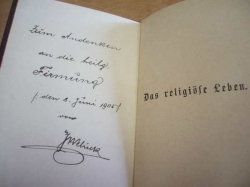 Zum Andenken
an die heilg.
Firmung
(den 8. Juni 1905)
von
Das religiöse Leben.